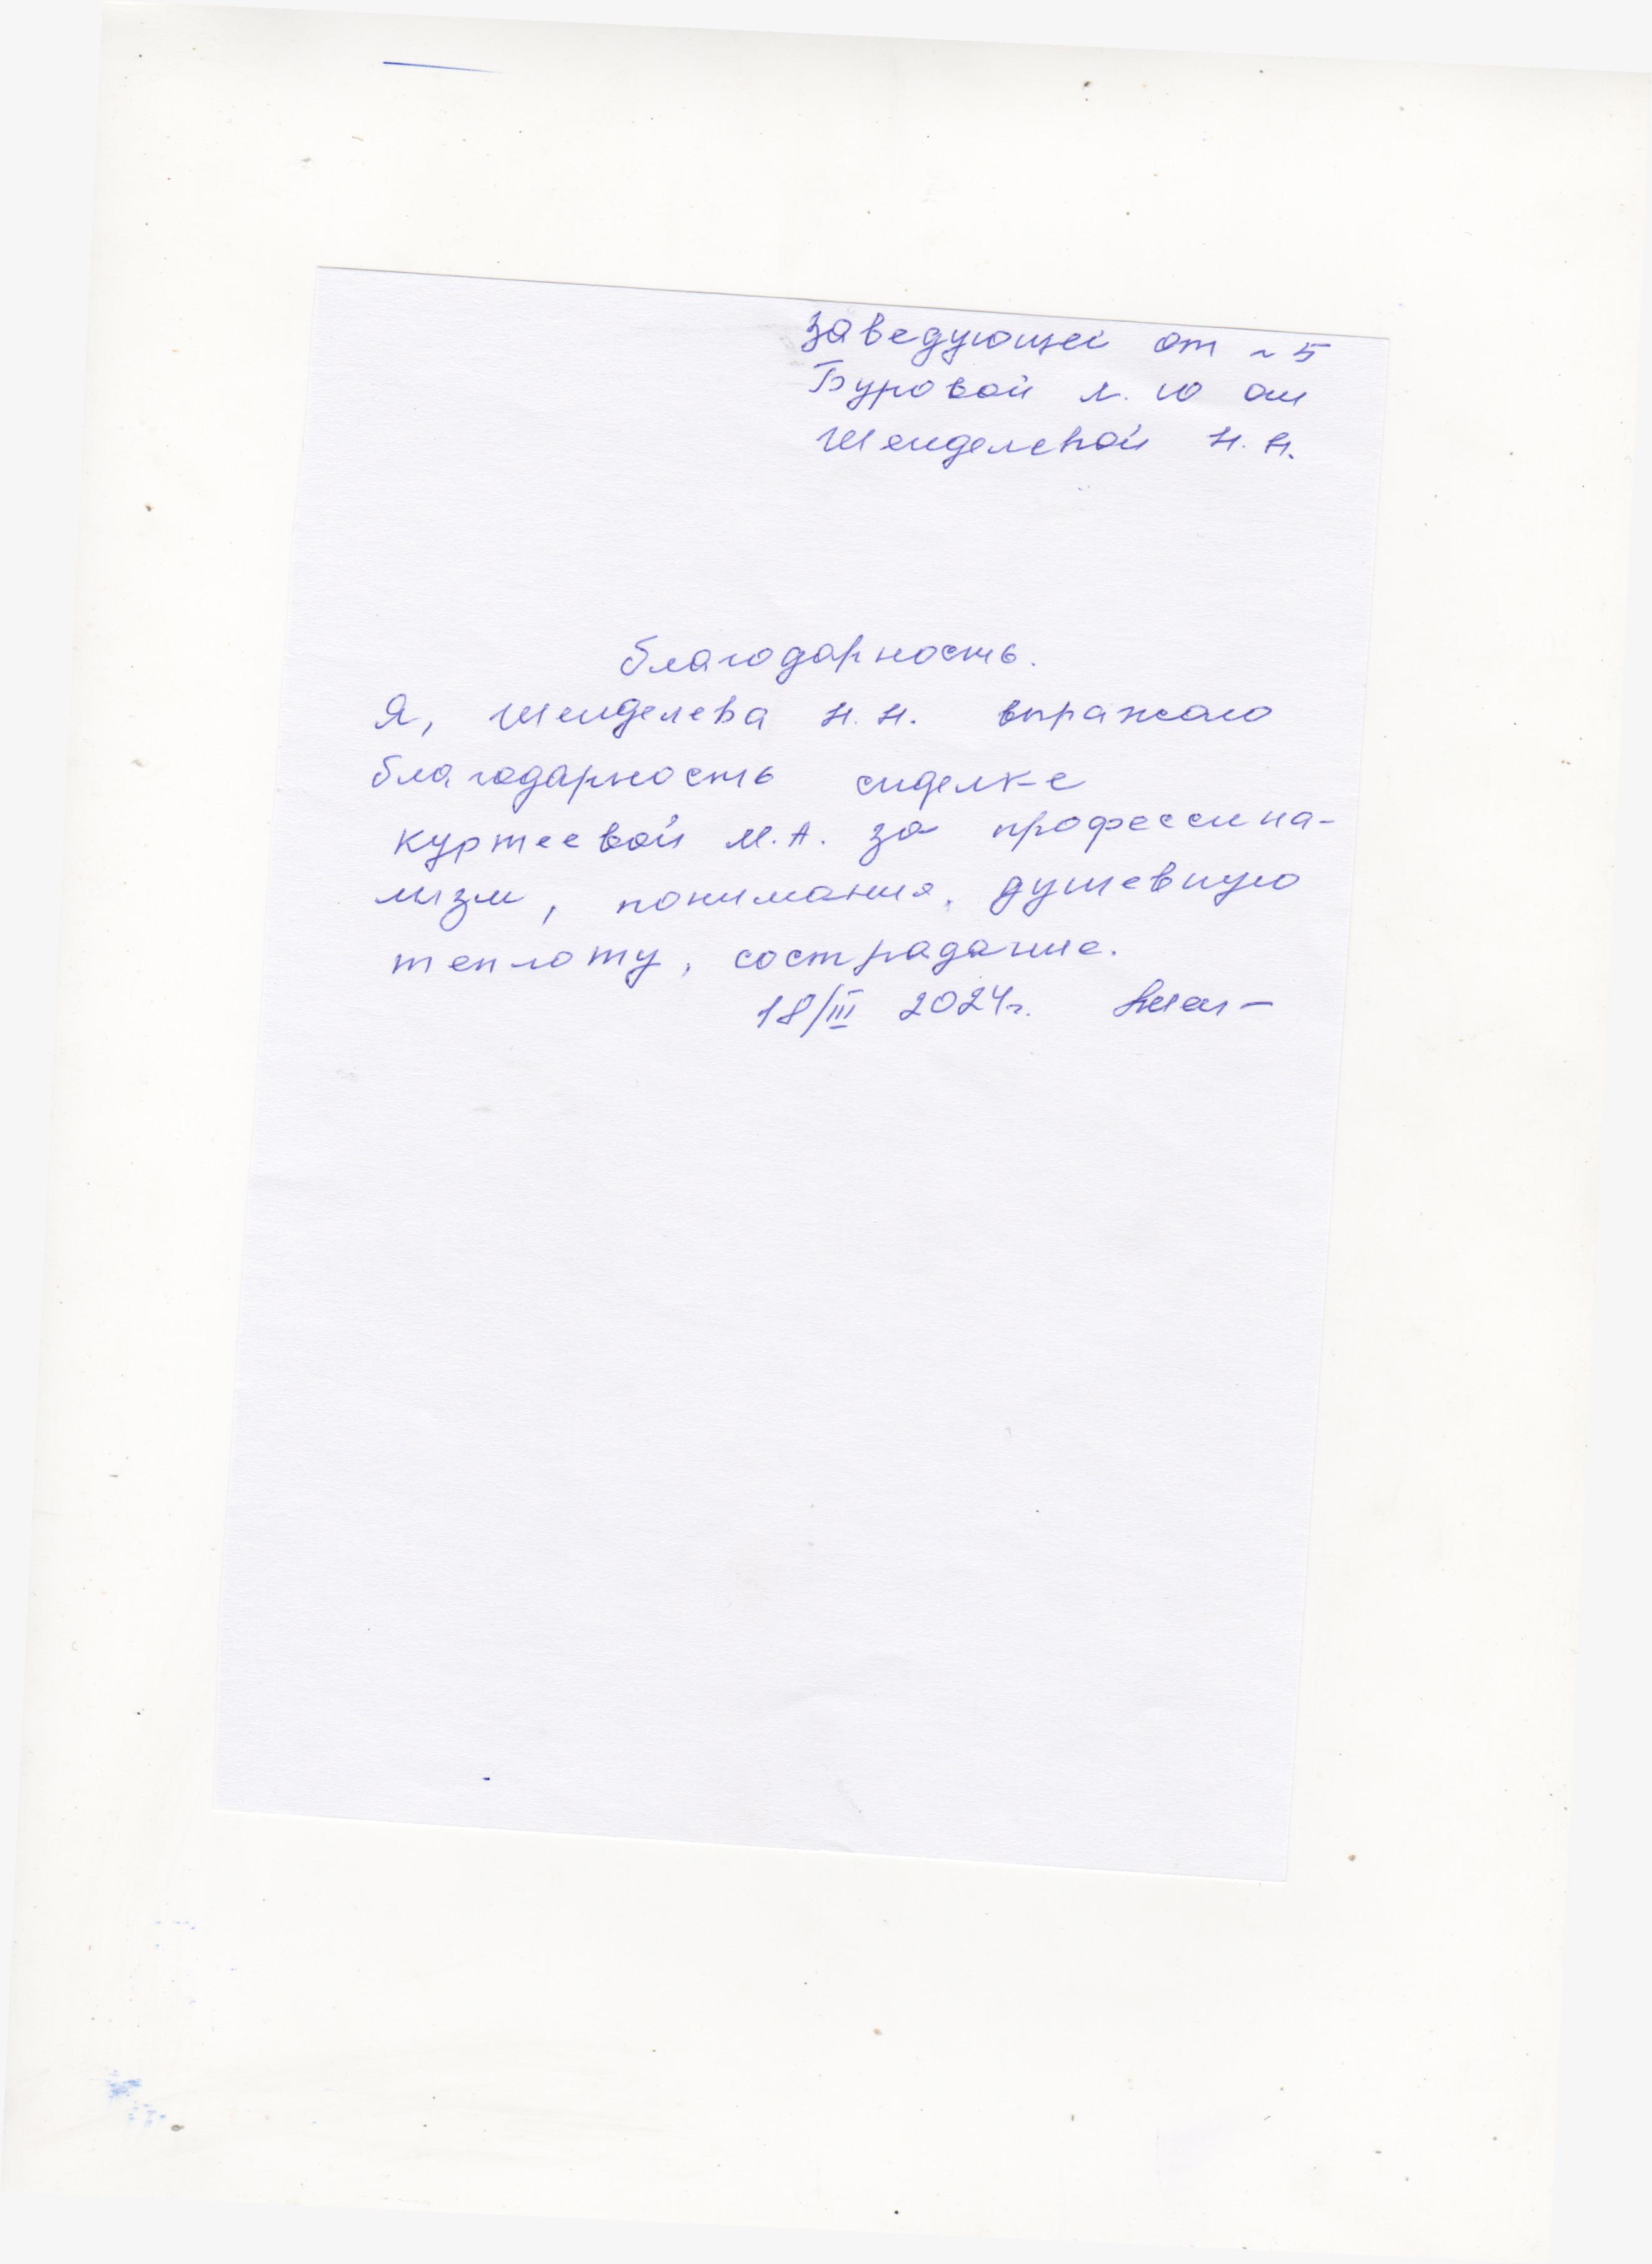 заведующей от ~ 5
Буровой Л. Ю от
Шенделевой Н. Н.
благодарность.
Я, Шенделева Н. Н. выражаю
благодарность сиделке
Куртеевой М. А. за профессина-
лизм, понимания, душевную
теплоту, сострадание.
18/III 2024г.